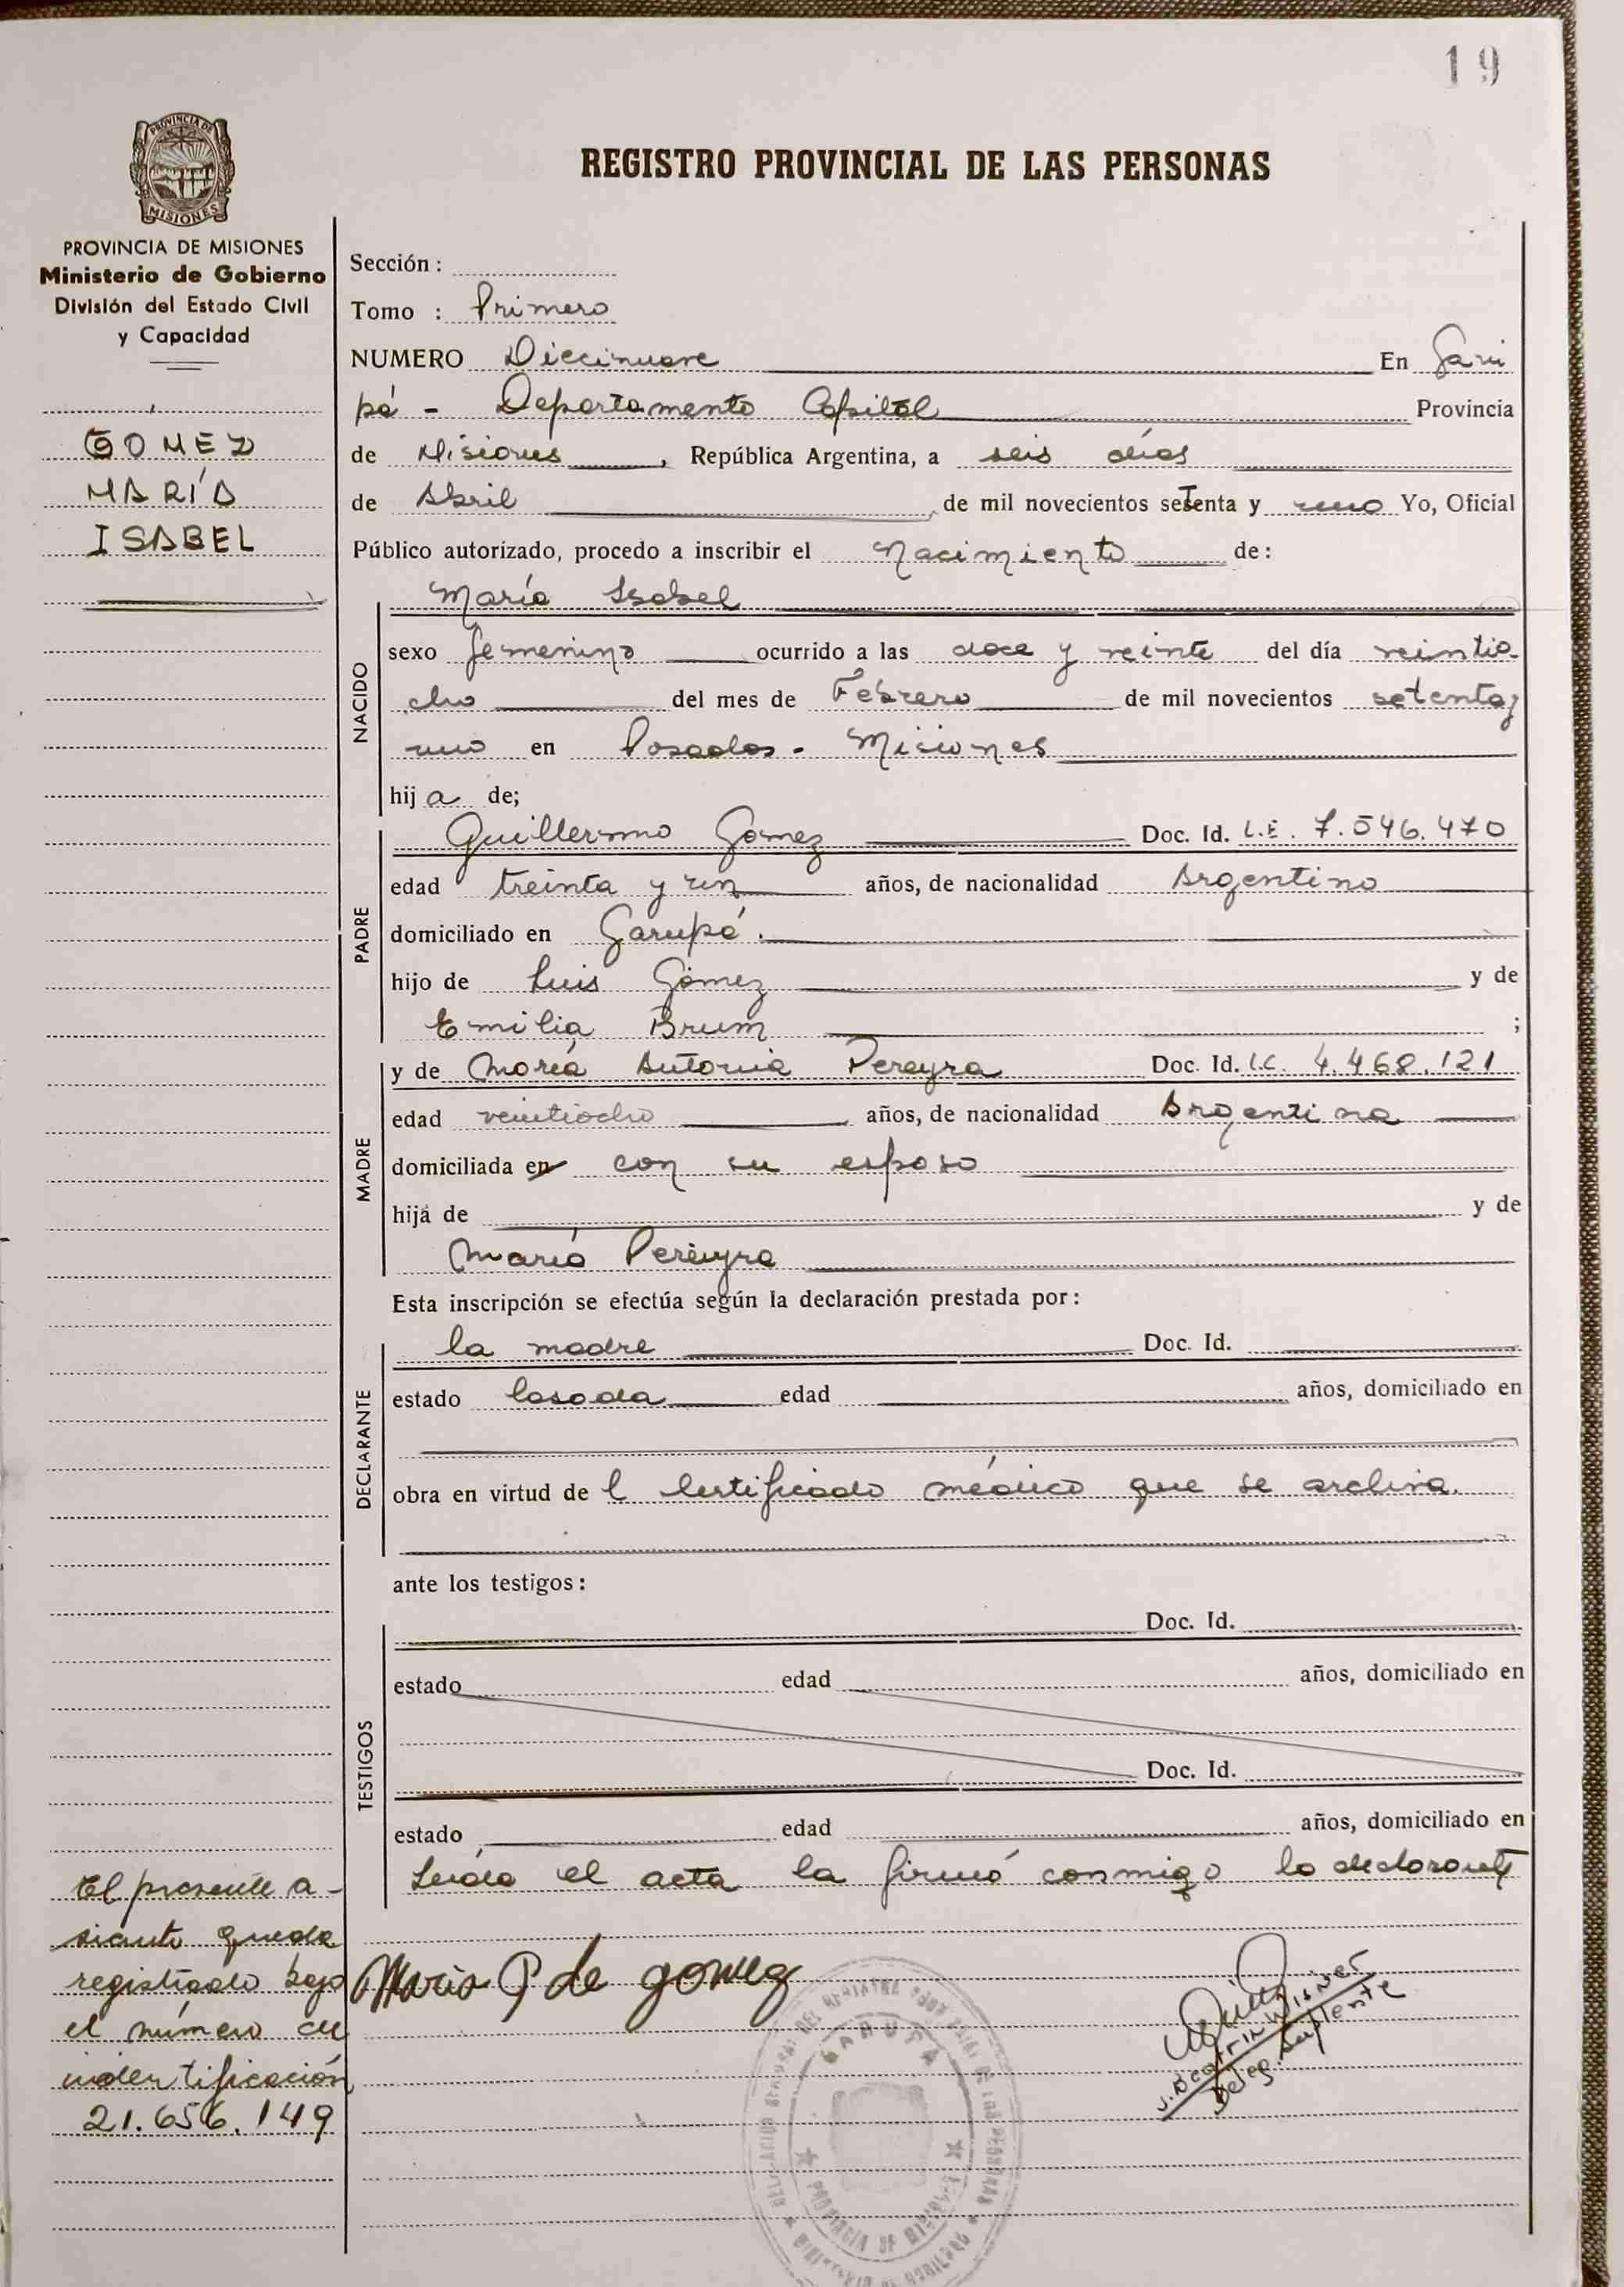 19
PROVINCIA DE MISIONES
PROVINCIA DE MISIONES
Ministerio de Gobierno
División del Estado Civil
y Capacidad
GOMEZ
MARÍA
ISABEL
REGISTRO PROVINCIAL DE LAS PERSONAS
Sección :
Tomo : Primero
NUMERO Diecinueve En Garu
pá - Departamento Capital Provincia
de Misiones, República Argentina, a seis días
de Abril de mil novecientos setenta y uno Yo, Oficial
Público autorizado, procedo a inscribir el Nacimiento de:
María Isabel
NACIDO
sexo femenino ocurrido a las doce y veinte del día veintio-
cho del mes de Febrero de mil novecientos setenta y
uno en Posadas - Misiones
hij a de;
PADRE
Guillermo Gómez Doc. Id. L.E. 7.546.470
edad treinta y un años, de nacionalidad Argentino
domiciliado en Garupá.
hijo de Luis Gómez y de
Emilia Brum ;
MADRE
y de María Antonia Pereyra Doc. Id. L.C. 4.468.121
edad veintiocho años, de nacionalidad Argentina
domiciliada en con su esposo
hija de y de
María Pereyra
Esta inscripción se efectúa según la declaración prestada por:
DECLARANTE
la madre Doc. Id.
estado Casada edad años, domiciliado en
obra en virtud de l Certificado médico que se archiva.
ante los testigos:
TESTIGOS
Doc. Id.
estado edad años, domiciliado en
Doc. Id.
estado edad años, domiciliado en
Leída el acta la firmó conmigo la declarante
Maria P de gomez
Deleg. Suplente
GARUPA
El presente a-
siento queda
registrado bajo
el número de
indentificación
21.656.149